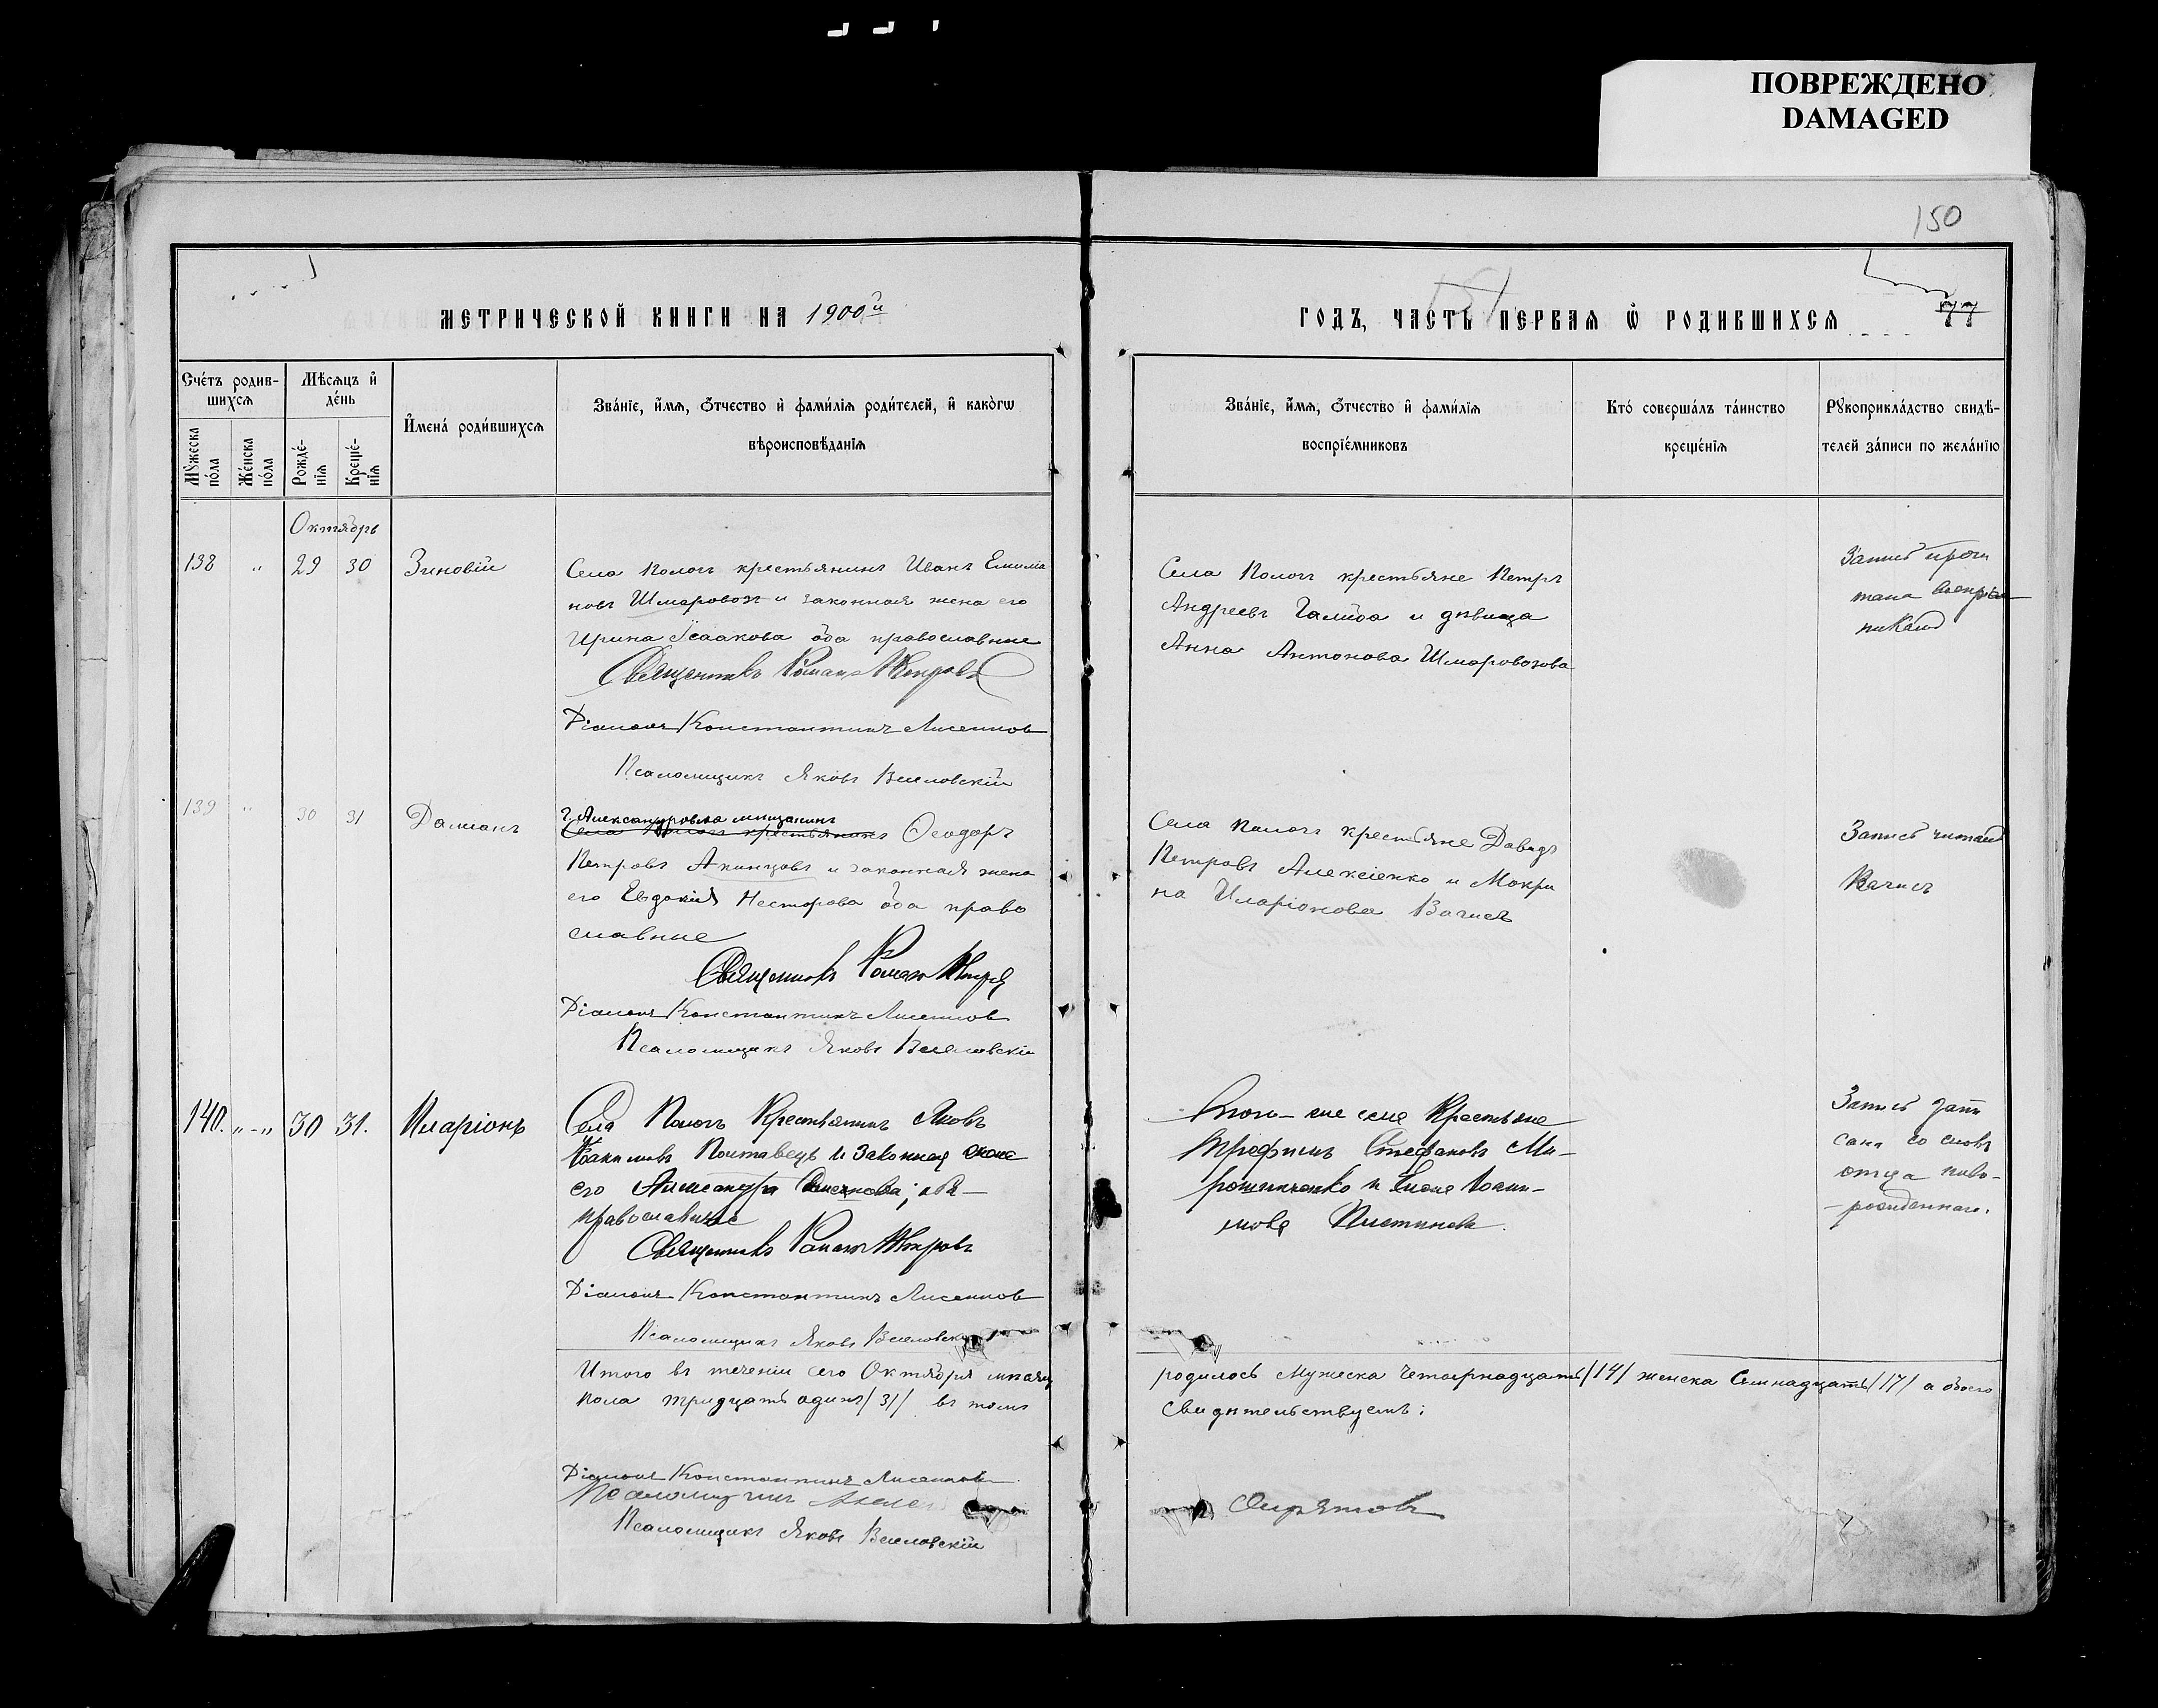 ПОВРЕЖДЕНО
DAMAGED
150
МЕТРИЧЕСКОЙ КНИГИ НА 1900й
ГОДЪ, ЧАСТЬ ПЕРВАЯ Ѡ РОДИВШИХСЯ 77
Счéтъ родив-
шихсѧ
Мѣсѧцъ и҆
дéнь
Мꙋжеска
пóла
Жéнска
пóла
Рождé-
нїѧ
Крещé-
нїѧ
И҆менá роди́вшихсѧ
Звáнїе, и҆́мѧ, ѻ҆́тчество и҆ фами́лїѧ роди́телей, и҆ какóгѡ
вѣроисповѣ́данїѧ
Звáнїе, и҆́мѧ, ѻ҆́тчество и҆ фами́лїѧ
воспрїе́мниковъ
Ктó совершáлъ тáинство
креще́нїѧ
Рꙋкоприклáдство свидѣ́-
телей зáписи по желáнїю
Октябрь
138 " 29 30 Зиновій
Села Пологъ крестьянинъ Иванъ Емилiа
новъ Шмаровозъ и законная жена его
Ирина Исаакова оба православные
Священникъ Романъ Петровъ
Діаконъ Константинъ
Псаломщикъ Яковъ
Села Пологъ крестьяне Петръ
Андреевъ и дѣвица
Анна Антонова Шмаровозова
Запись прочи
тана воспрiем
никами
139 " 30 31 Даміанъ
г. Александровска мещанинъ
Села Пологъ крестьянинъ Ѳеодоръ
Петровъ Акинцовъ и законная жена
его Евдокія Несторова оба право
славные
Священникъ Романъ Петровъ
Діаконъ Константинъ
Псаломщикъ Яковъ
Села Пологъ крестьяне Давидъ
Петровъ Алексіенко и Мокри
на Иларіонова Вачисъ
Запись читалъ
Вачисъ
140. "-" 30 31. Иларіонъ
Села Пологъ Крестьянинъ Яковъ
Іоакимовъ Полтавецъ и Законная жена
его Александра оба
православные
Священникъ Романъ Петровъ
Діаконъ Константинъ
Псаломщикъ Яковъ
Того-же села Крестьяне
Трофимъ Стефановъ Ми-
рошниченко и Іоаки-
мова
Запись запи
сана со словъ
отца ново-
-рожденнаго.
Итого въ теченіи сего Октября мѣсяца
родилось Мужеска Четырнадцать /14/ женска Семнадцать /17/ а обоего
пола тридцать одинъ /31/ въ томъ
свидѣтельствуемъ:
Діаконъ Константинъ
Псаломщикъ
Псаломщикъ Яковъ